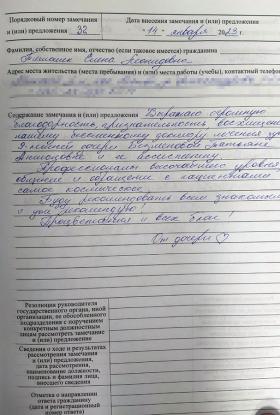 Порядковый номер замечания
и (или) предложения 32
Дата внесения замечания и (или) предложения
"14" января 2023 г.
Фамилия, собственное имя, отчество (если таковое имеется) гражданина
Елена Леонидовна
Адрес места жительства (места пребывания) и (или) места работы (учебы), контактный телефон
Содержание замечания и (или) предложения Выражаю огромную
благодарность, признательность, восхищение
нашему доктору
Татьяне
и её ассистенту
Профессионалы высочайшего уровня
общение и обращение с пациентами
самое космическое
Буду рекомендовать всем знакомым
и уже рекомендую!
Процветания и всех благ!
От дочери ♡
Резолюция руководителя
государственного органа, иной
организации, ее обособленного
подразделения с поручением
конкретным должностным
лицам рассмотреть замечание
и (или) предложение
Сведения о ходе и результатах
рассмотрения замечания
и (или) предложения,
дата рассмотрения,
наименование должности,
подпись и фамилия лица,
внесшего сведения
Отметка о направлении
ответа гражданину
(дата и регистрационный
номер ответа)